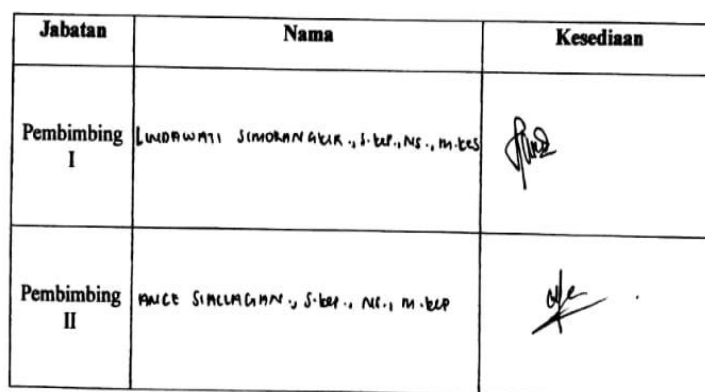 Jabatan Nama Kesediaan
Pembimbing I LINDAWATI SIMORANGKIR., S.kep., NS., M.kes
Pembimbing II ANCE SIALLAGAN., S.kep., NS., M.kep